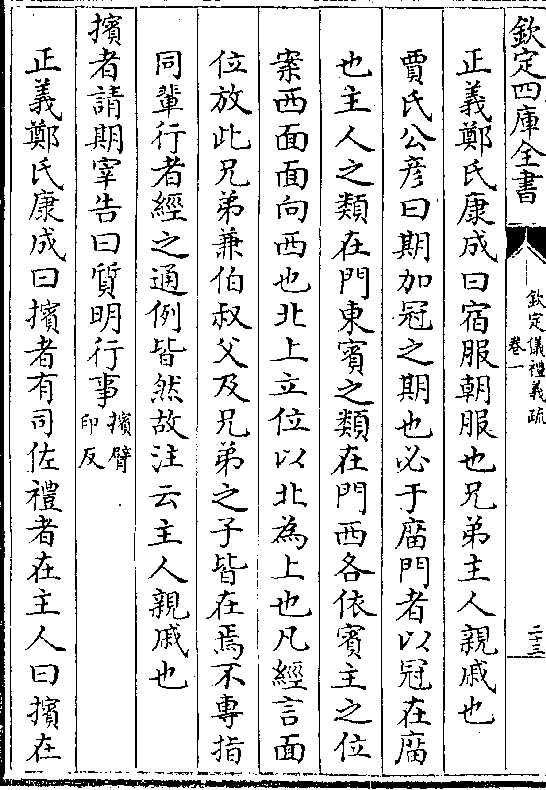 欽定四庫全書
欽定儀禮義疏
卷一
二十三
正義鄭氏康成曰宿服朝服也兄弟主人親戚也
賈氏公彦曰期加冠之期也必于庿門者以冠在庿
也主人之類在門東賓之類在門西各依賓主之位
案西面面向西也北上立位以北為上也凡經言面
位放此兄弟兼伯叔父及兄弟之子皆在焉不專指
同輩行者經之通例皆然故注云主人親戚也
擯者請期宰告曰質明行事擯臂印反
正義鄭氏康成曰擯者有司佐禮者在主人曰擯在